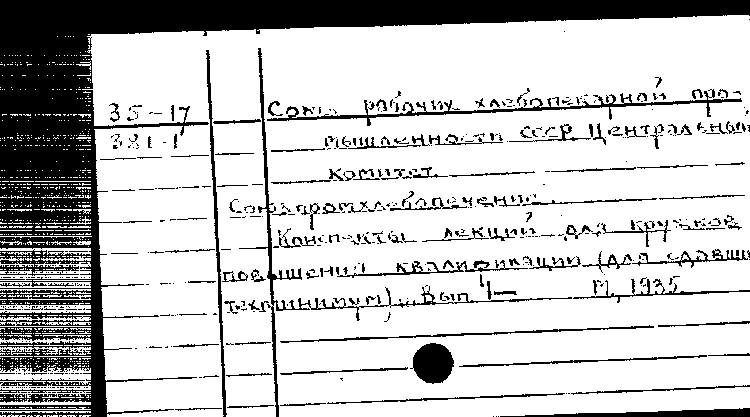 35-17 Союз рабочих хлебопекарной про-
381-1 мышленности СССР Центральный
комитет.
Союзпромхлебопечение.
Конспекты лекций для кружков
повышения квалификации (для сдавши
техминимум)... Вып. 1— М., 1935